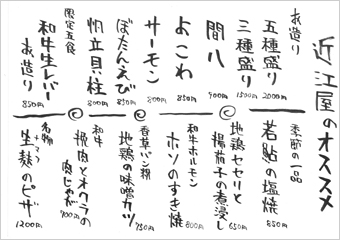 近江屋のオススメ
お造り
五種盛り
2000円
三種盛り
1500円
間八
900円
よこわ
850円
サーモン
800円
ぼたんえび
850円
帆立貝柱
800円
限定五食
和牛生レバー
お造り
850円
季節の一品
若鮎の塩焼
850円
地鶏セセリと
揚茄子の煮浸し
650円
和牛ホルモン
ホソのすき焼
800円
香草パン粉
地鶏の味噌カツ
750円
和牛
挽肉とオクラの
肉じゃが
900円
名物
生麩のピザ
1200円